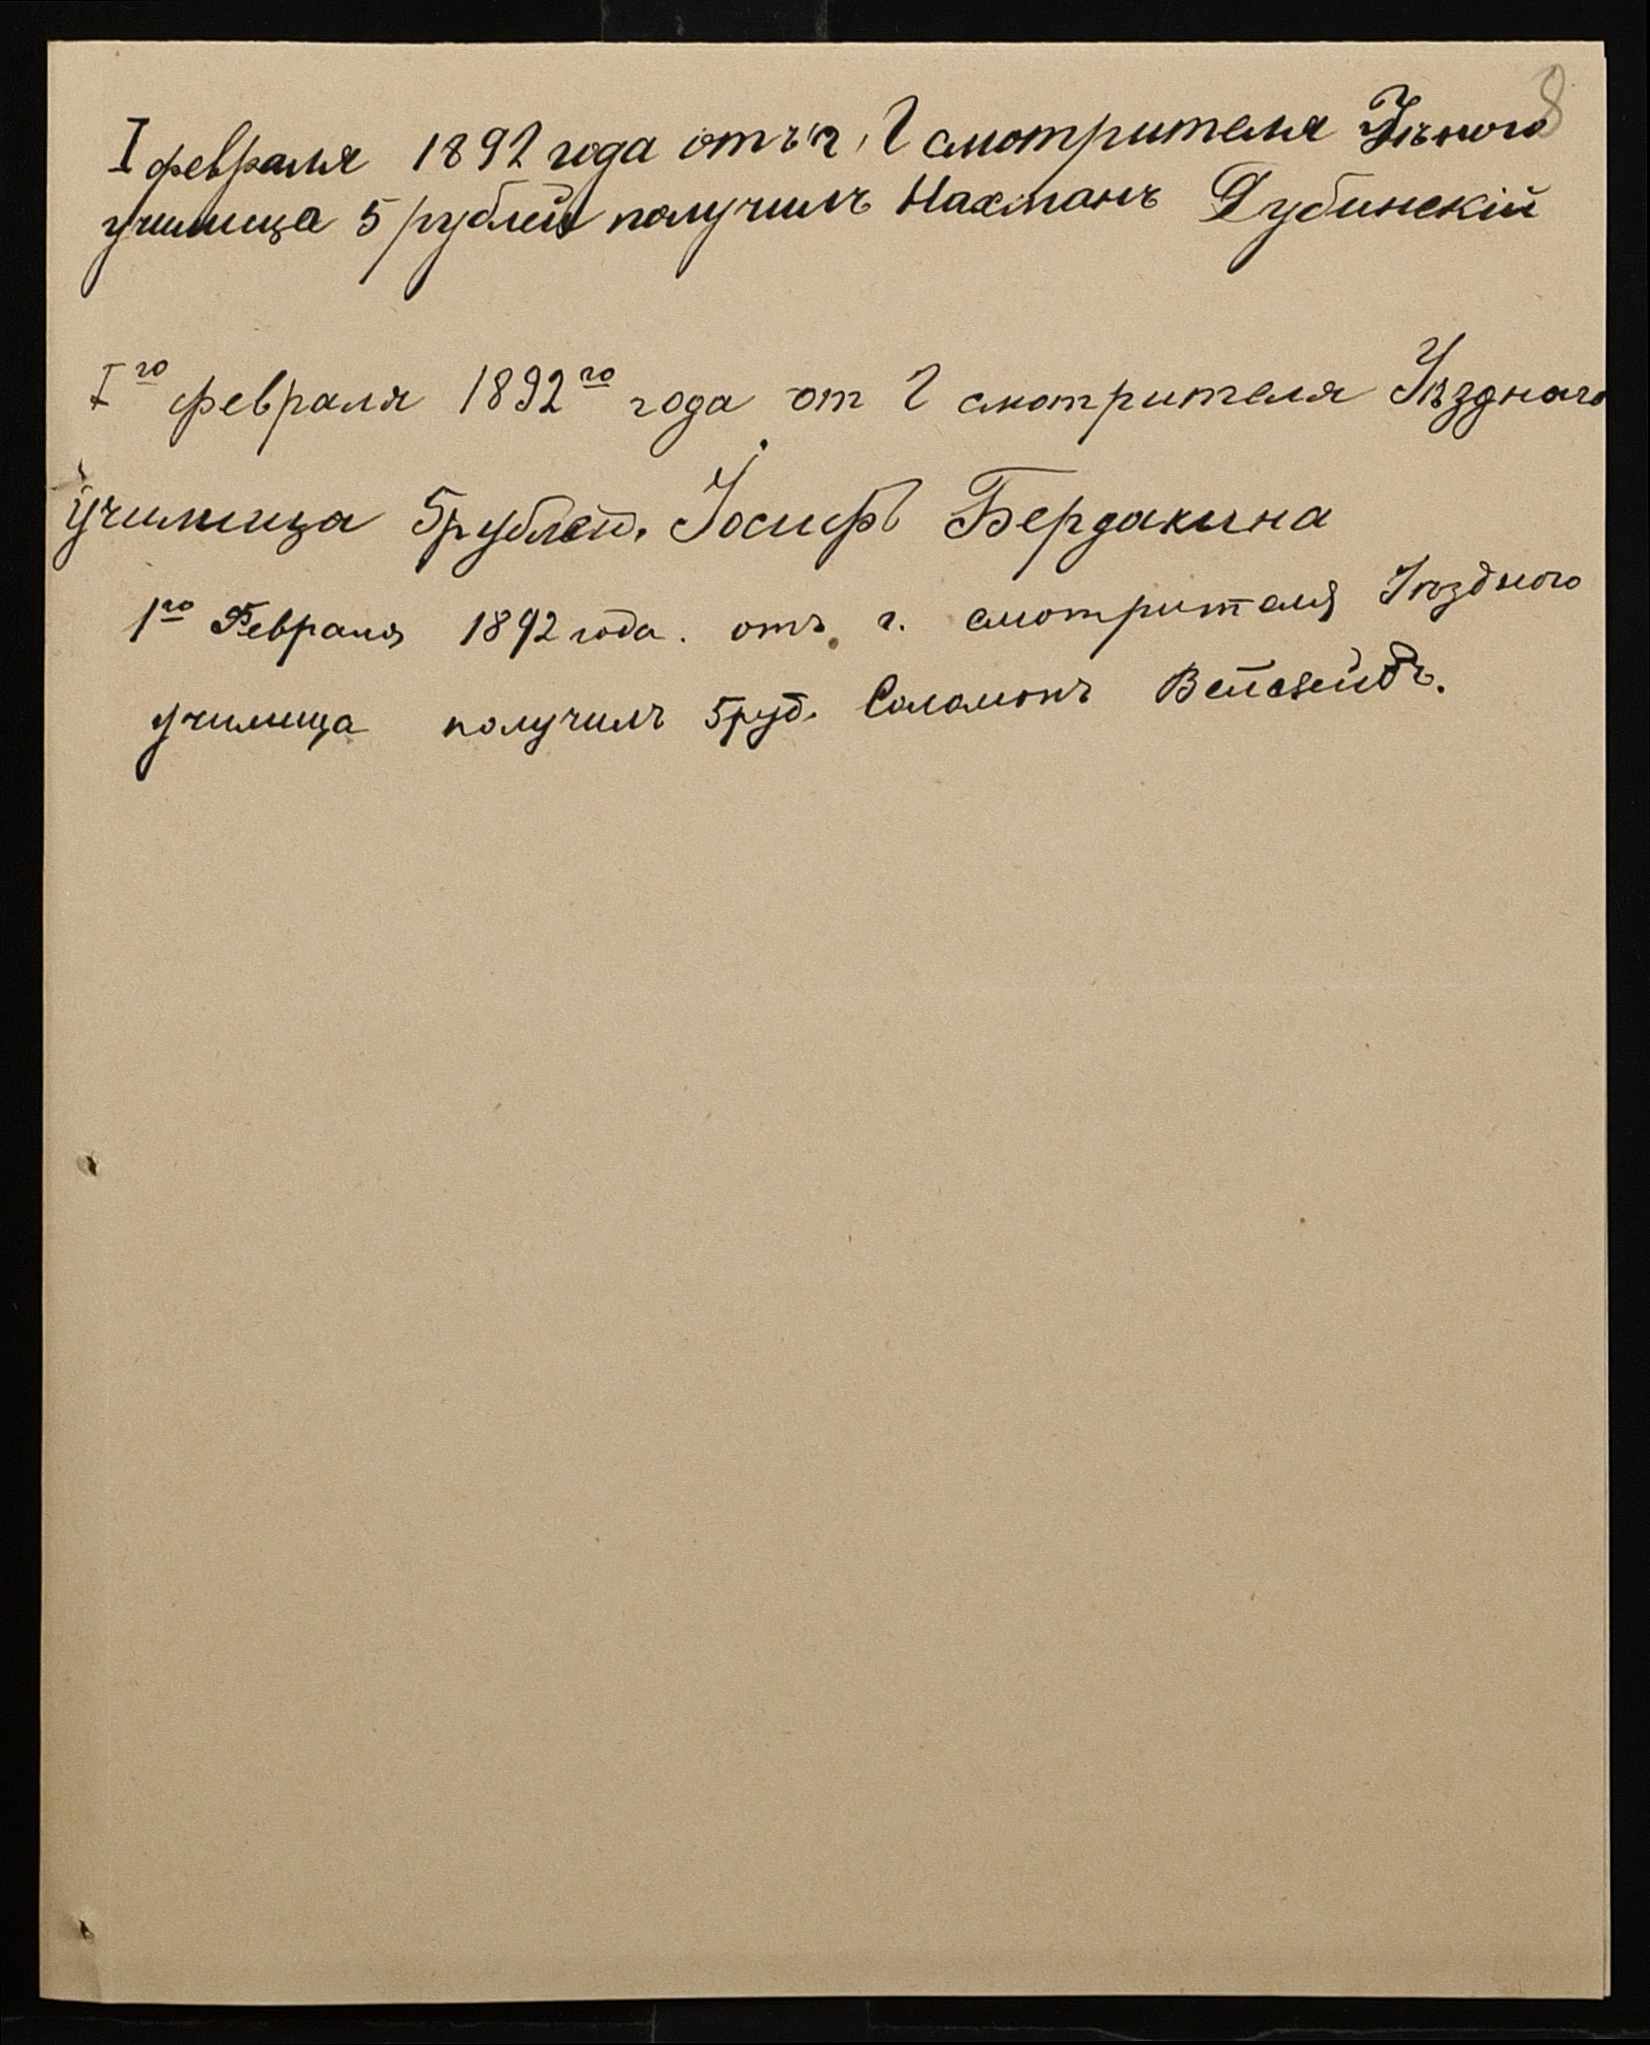 8
I февраля 1892 года отъ г. Г смотрителя Уѣного
училища 5 рублей получилъ Нахманъ Дубинскій
Iго февраля 1892го года от Г смотрителя Уѣзднаго
Училища 5 рублей. Іосифъ Бердакина
1го Февраля 1892 года. отъ г. смотрителя Уѣздного
училища получилъ 5 руб. Соломонъ